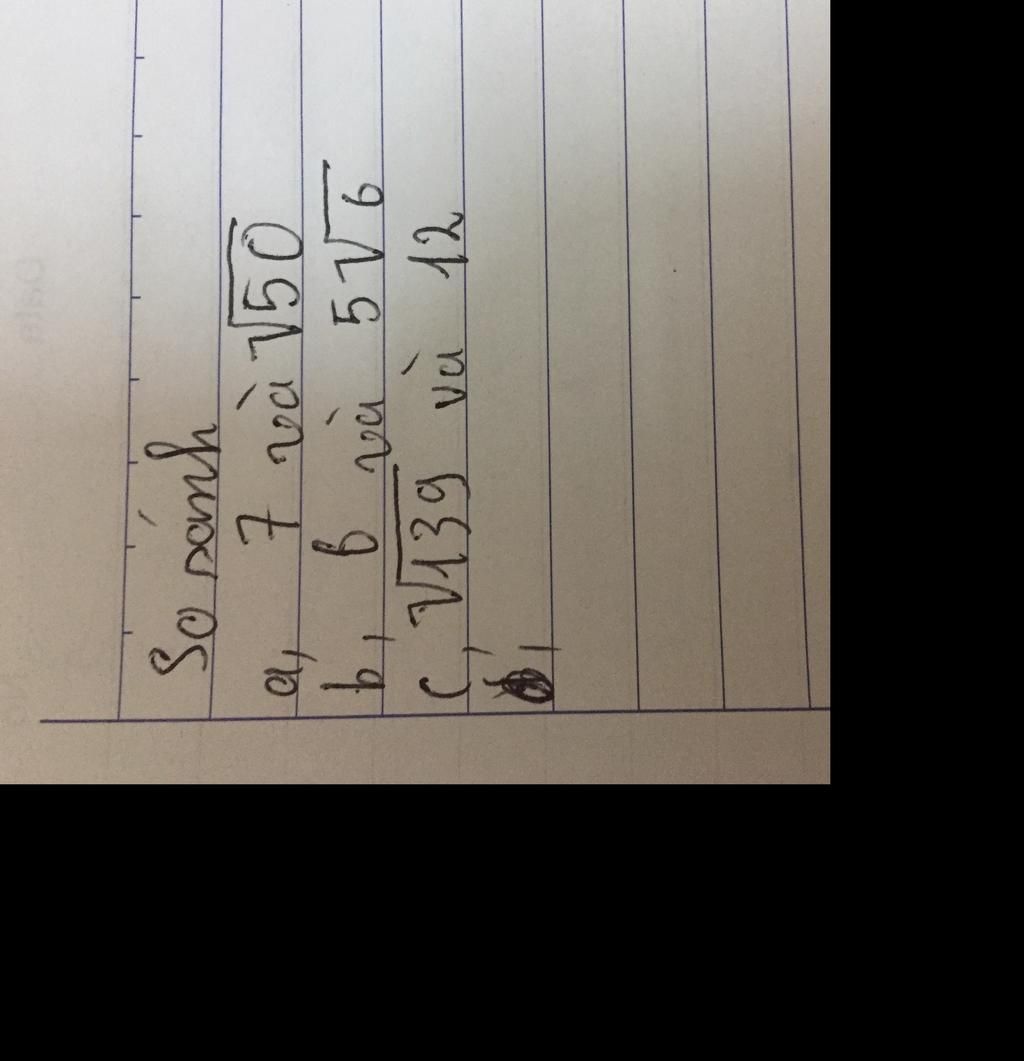 So sánh
a, 7 và √50
b, 6 và 5√6
c, √139 và 12